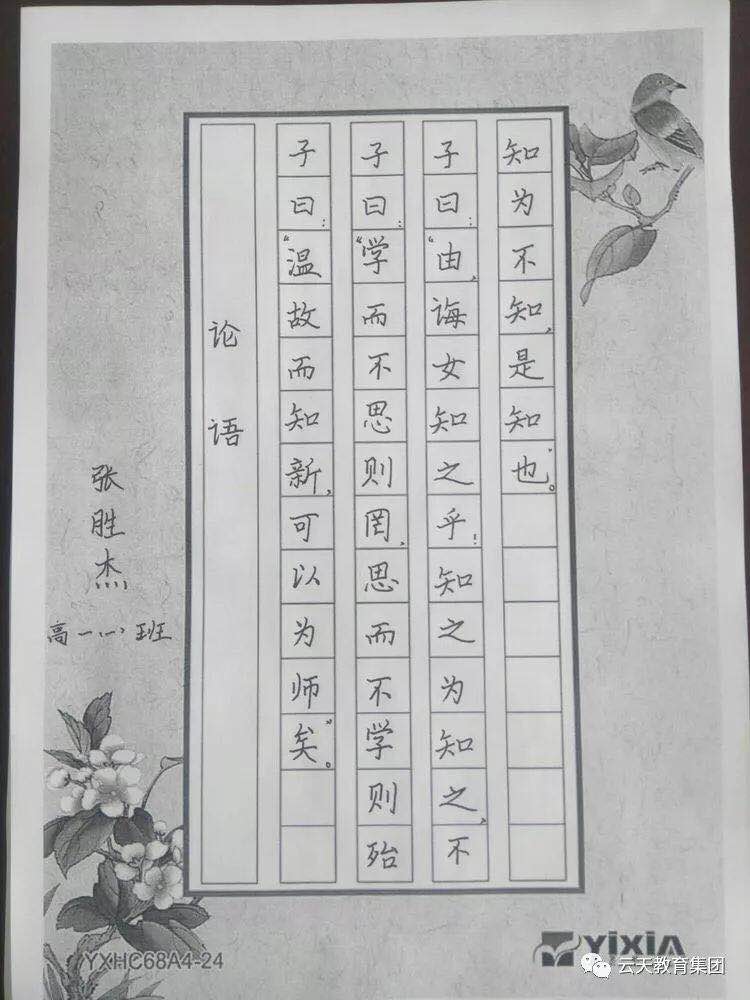 论语
子曰：“温故而知新，可以为师矣”。
子曰：“学而不思则罔，思而不学则殆
子曰：“由，诲女知之乎！知之为知之，不
知为不知，是知也”。
张胜杰
高一(一)班
YXHC68A4-24
YiXiA
云天教育集团